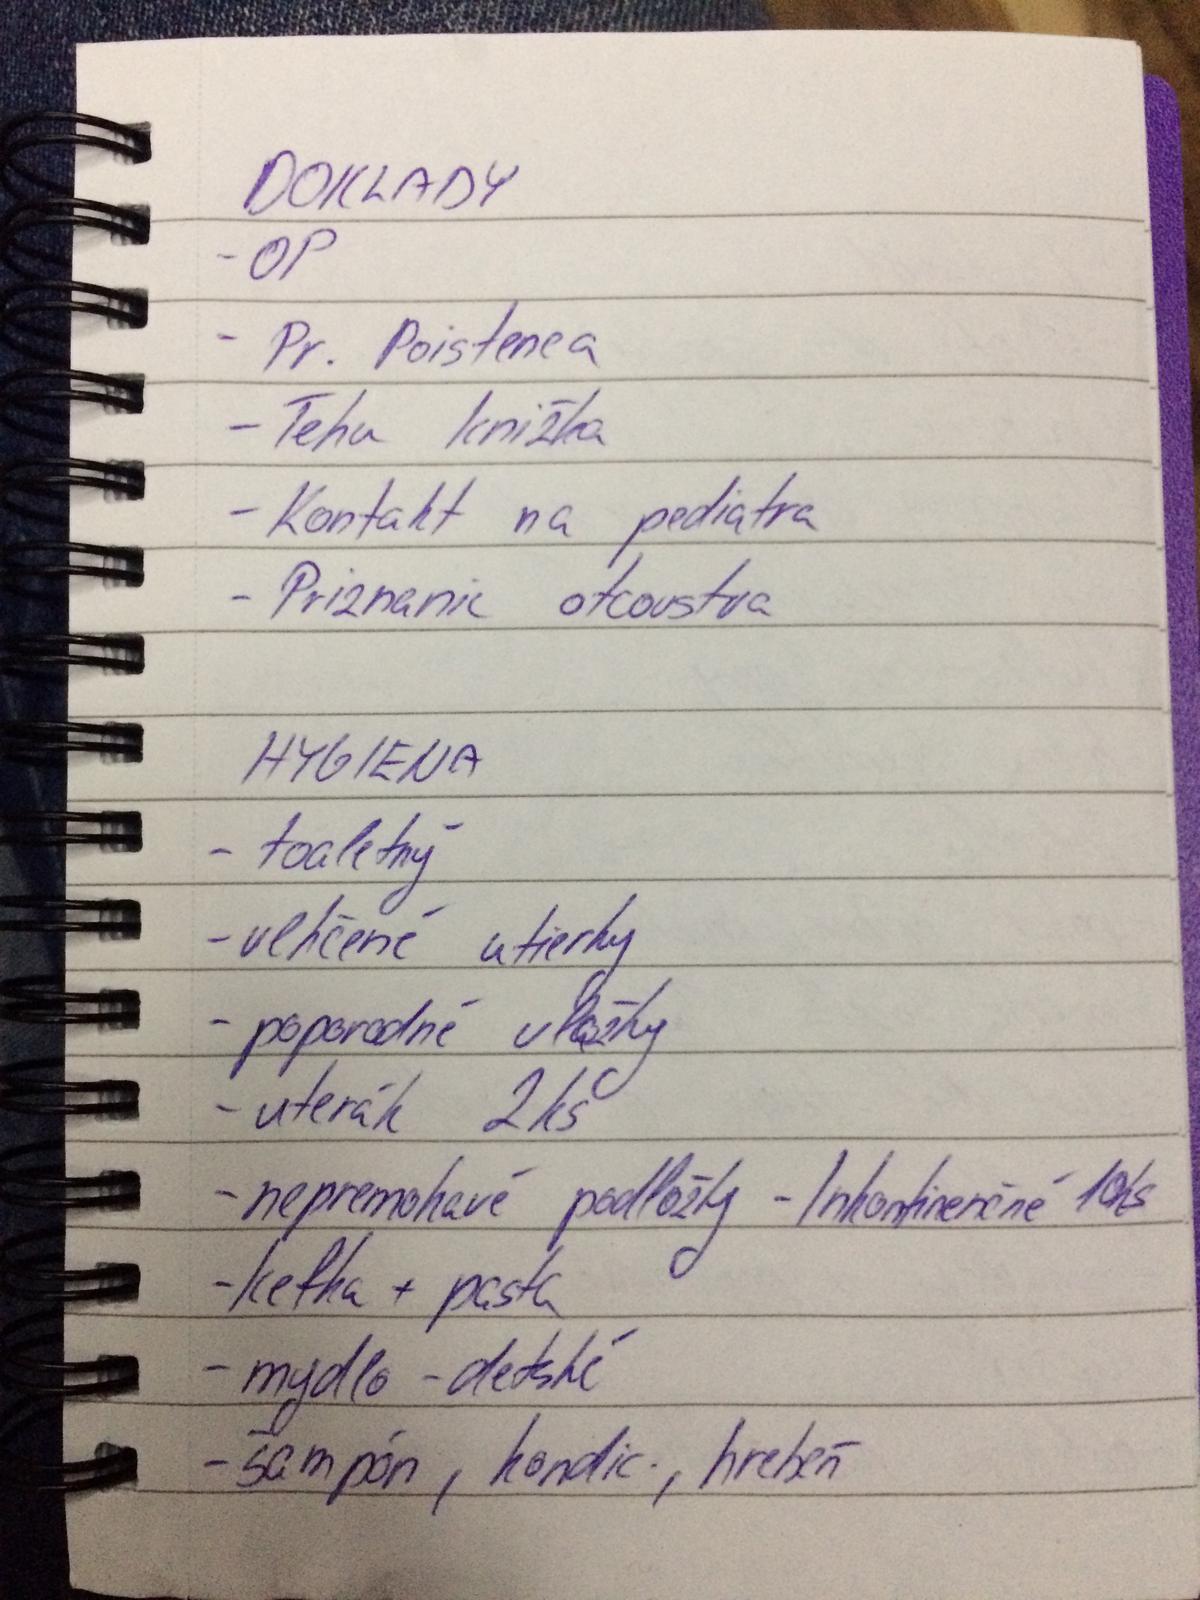 DOKLADY
- OP
- Pr. Poistenca
- Tehu knižka
- Kontakt na pediatra
- Priznanie otcovstva
HYGIENA
- toaletný
- vlhčené utierky
- poporodné vložky
- uterák 2ks
- nepremokavé podložky - Inkontinenčné 10ks
- kefka + pasta
- mydlo - detské
- šampón, kondic., hrebeň